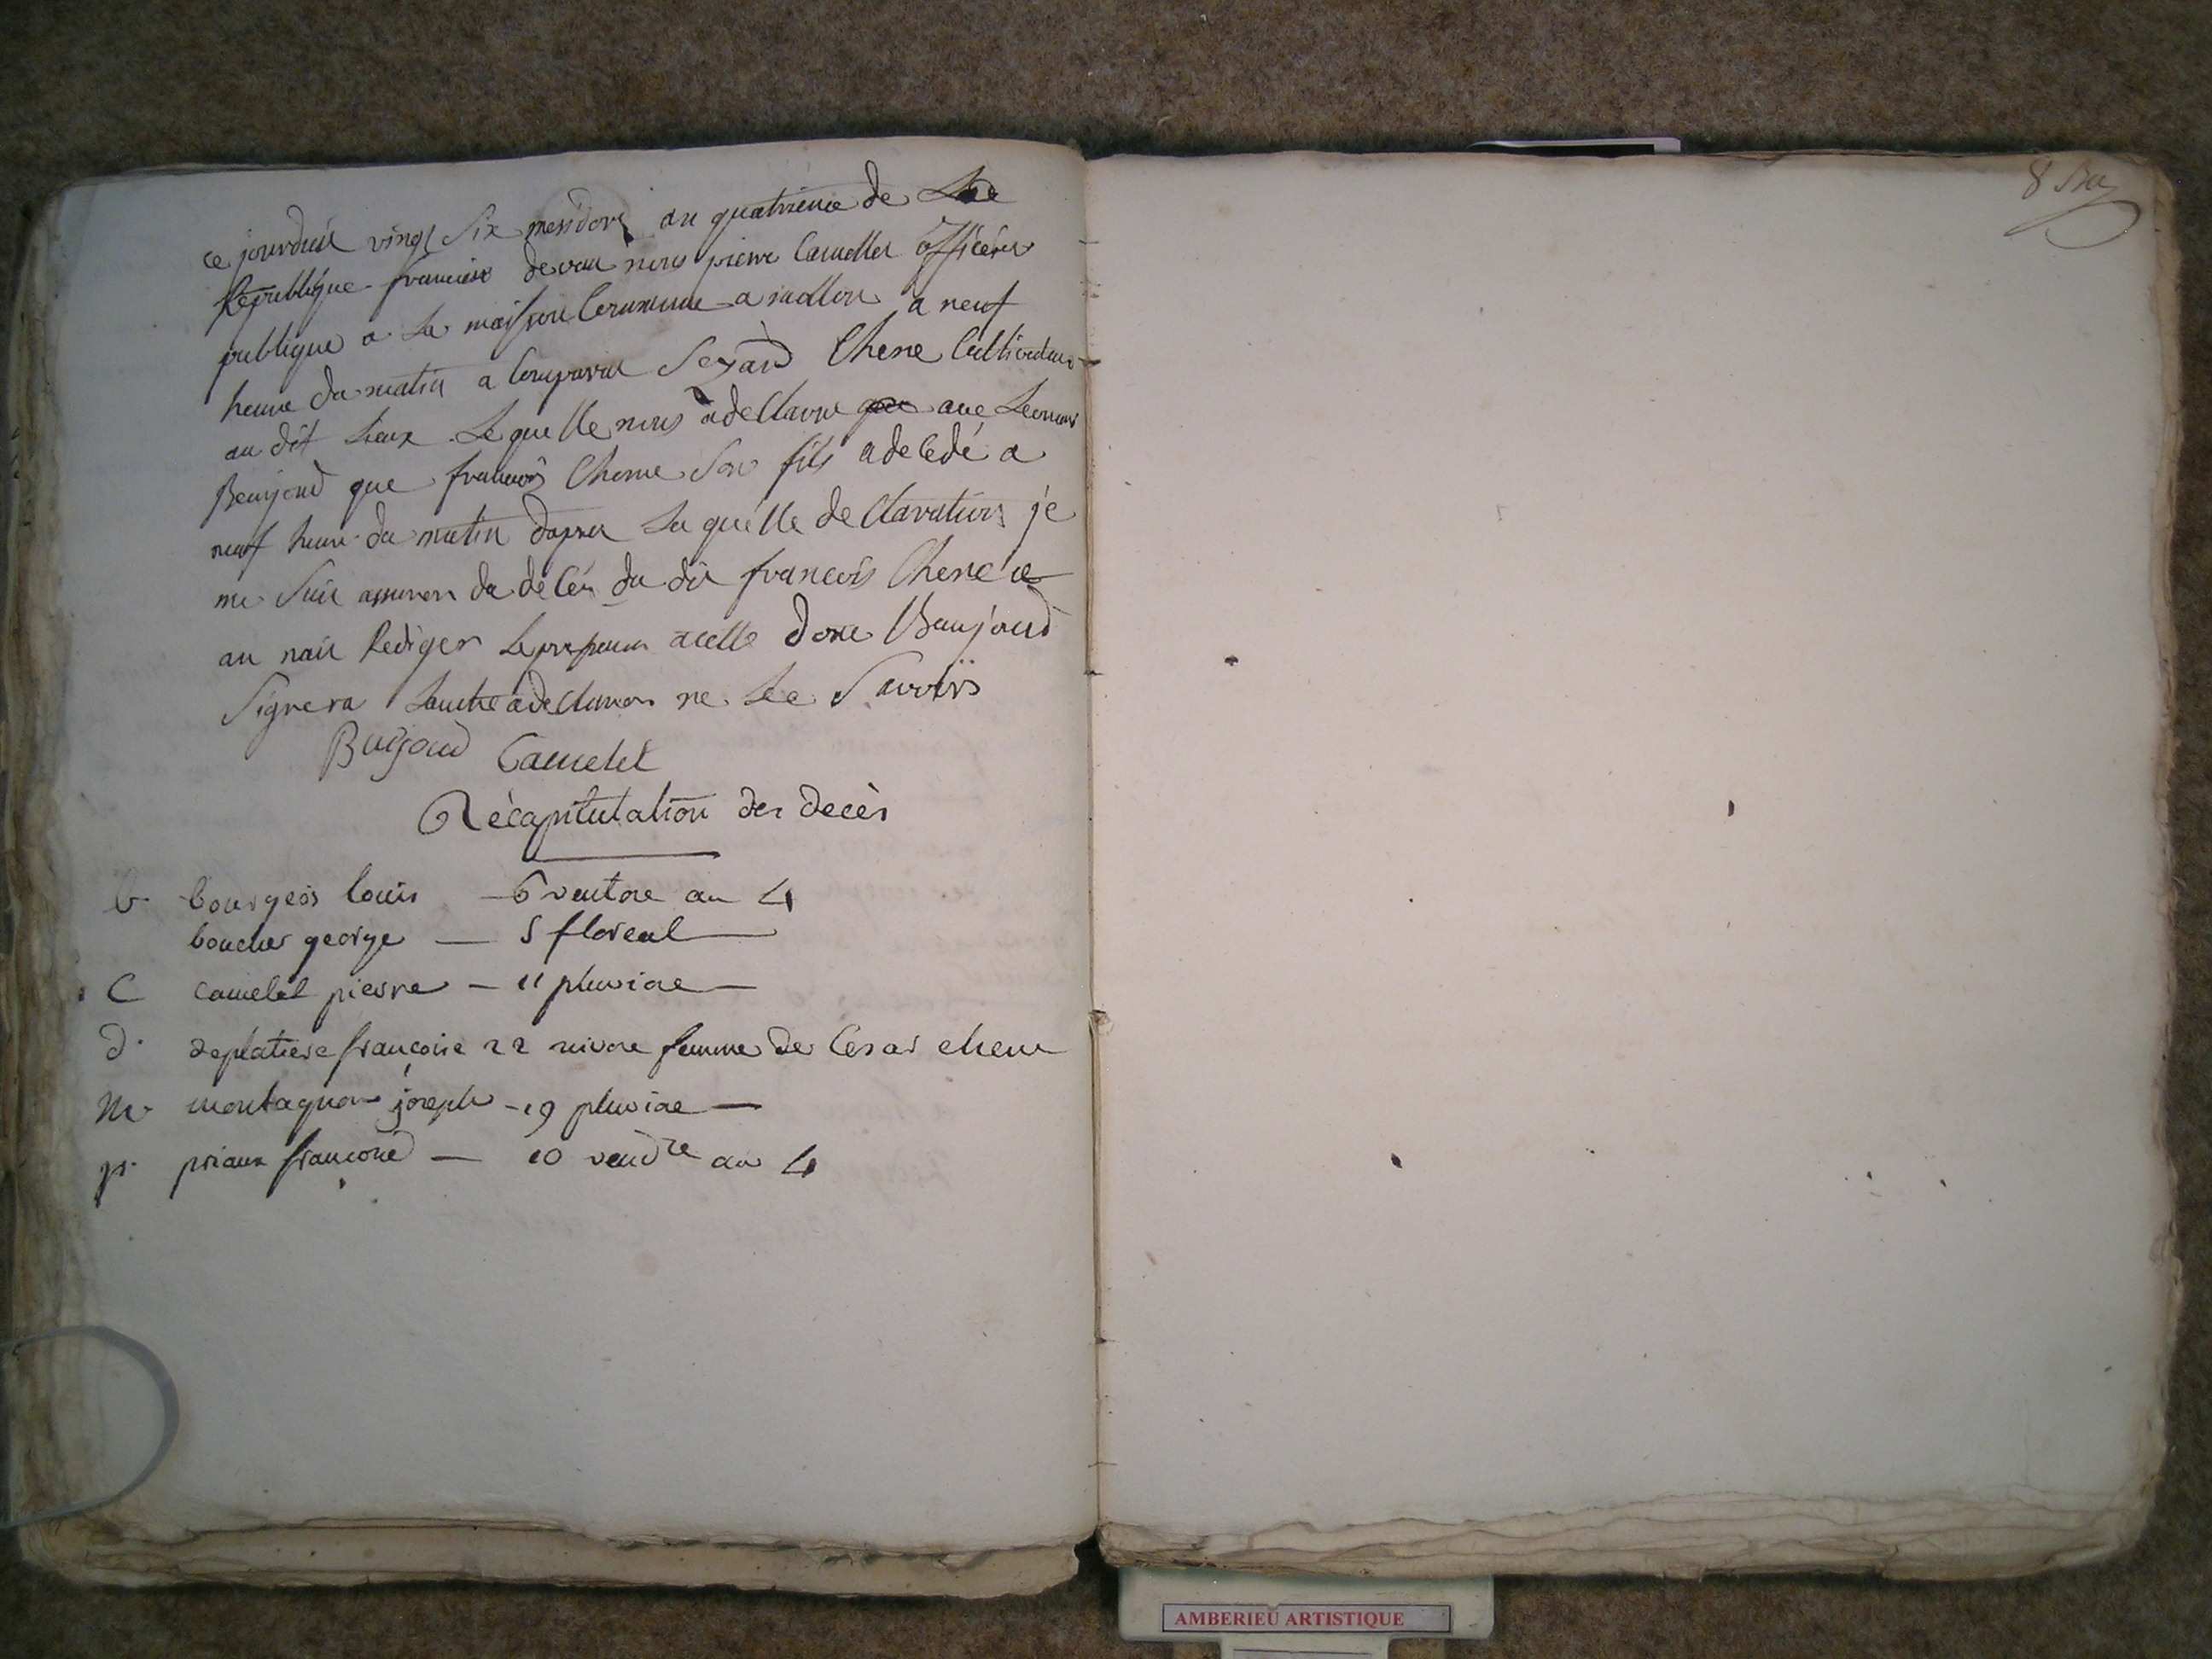 ce jourduit vingt six mesidort an quatrieme de La
Republique francaise devan nous pierre Camellet officéer
publique a La maison Commune a a neuf
heure du matin a Comparru Sezard Chene Cultivateur
au dit Lieux Le quelle nous a declarre ave Leonard
Beaujoud que francois Chene Son fils a decedé a
neuf heure du matin dapres La quelle declaration je
me Suis assurer du decés du dit francois Chene ce
an nait Rediger Le presean acette Beaujoud
Signera Lautre a declarer ne Lee Savoirs
Baujoud Camelet
Récapitulation des decès
b. bourgeois louis — 6 ventose an 4
boucher george — 5 floreal —
C camelet pierre — 11 pluviose —
d. deplatiere francoise 22 nivose femme de Cesar chene
M. montagnon joseph — 19 pluviose —
p. priaux francoise — 10 vend.re an 4
8
AMBERIEU ARTISTIQUE